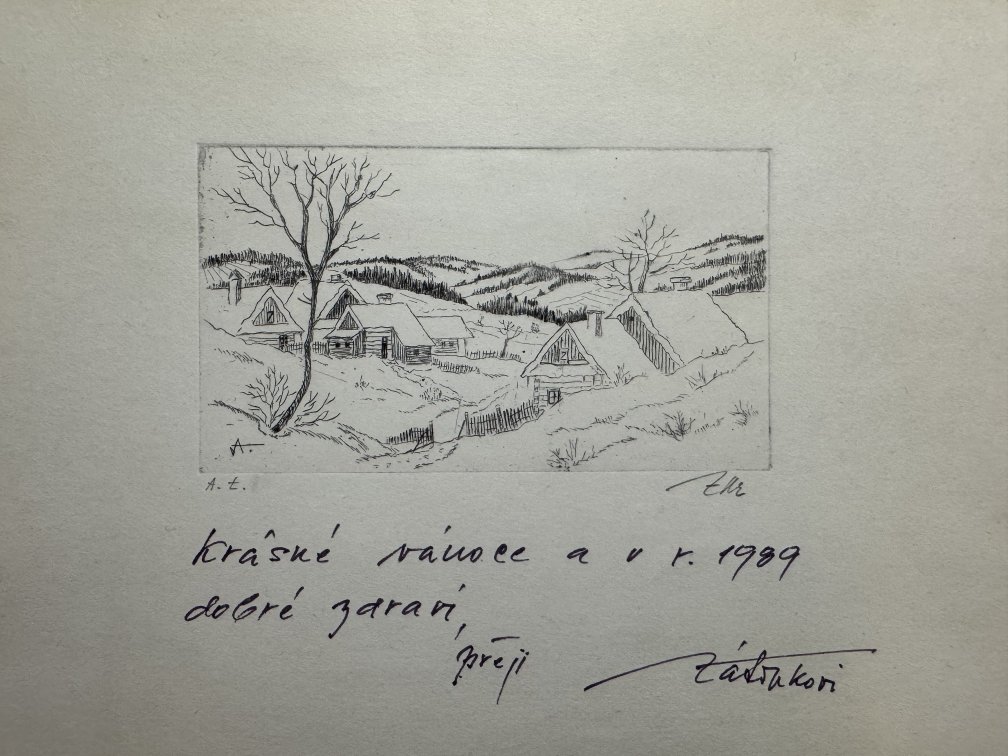 A.
A. t.
krásné vánoce a v r. 1989
dobré zdraví,
přeji Zátinkovi